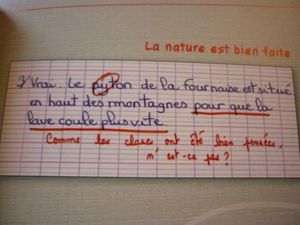 La nature est bien faite
3/ Vrai. Le pyton de la fournaise est situé
en haut des montagnes pour que la
lave coule plus vite.
Comme les choses ont été bien pensées,
n'est-ce pas ?